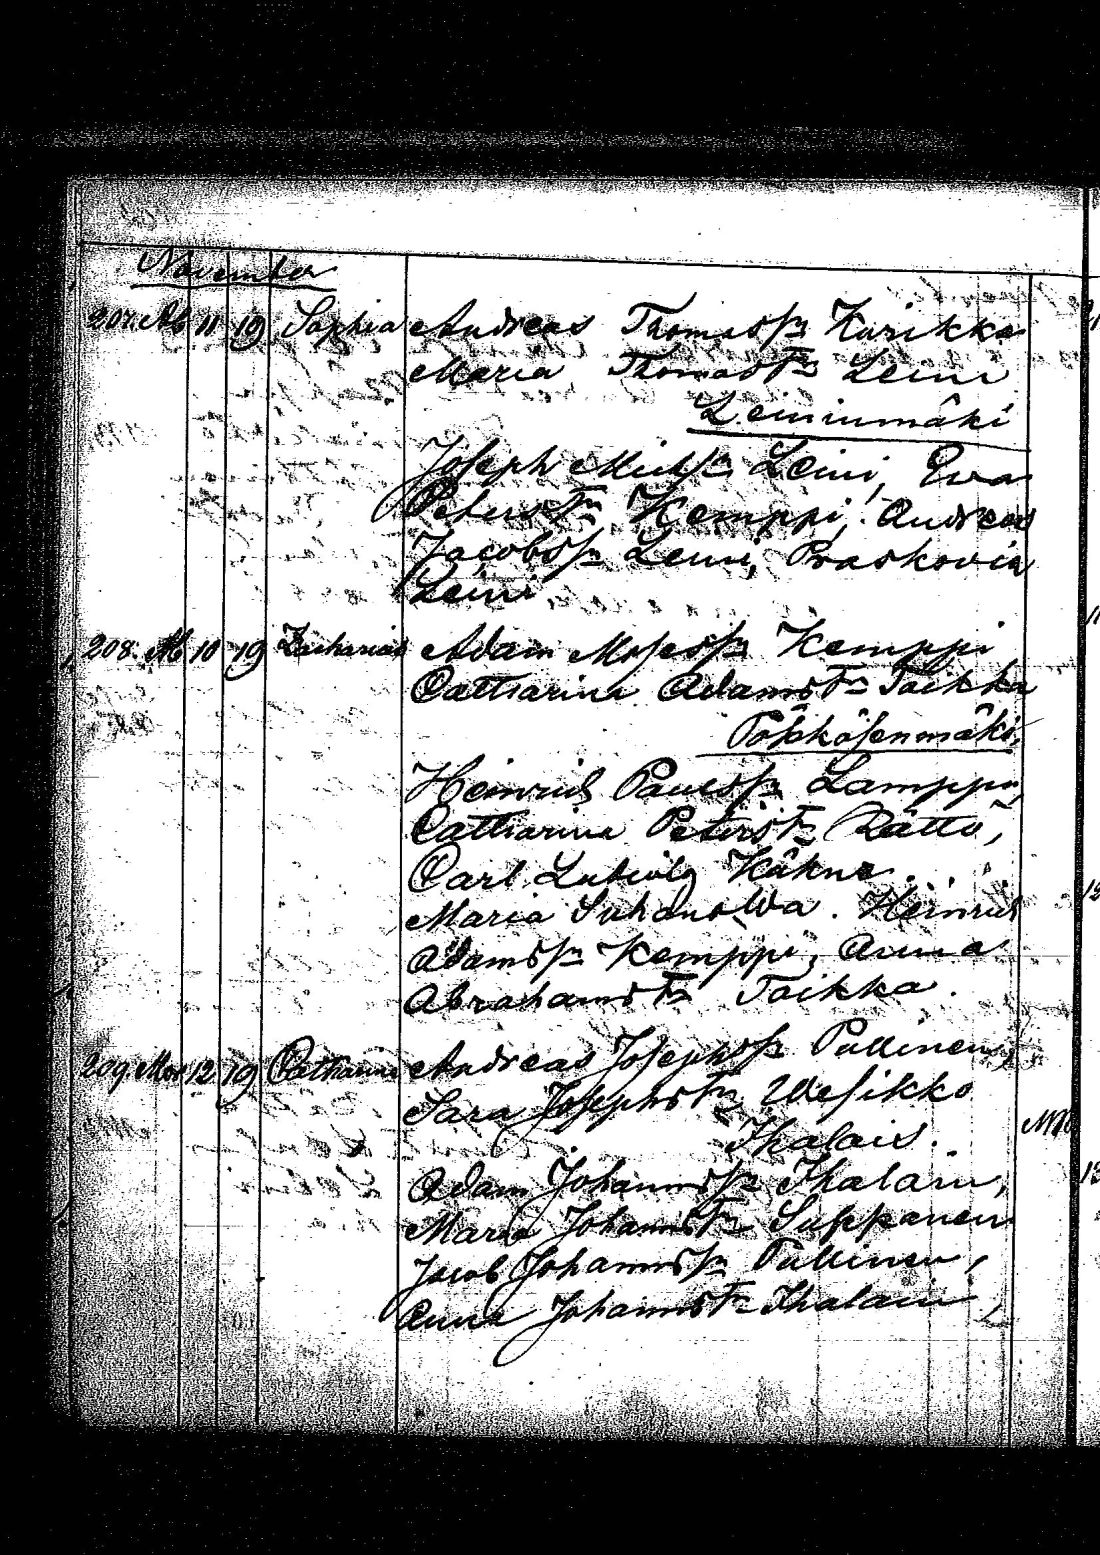 November
207. Ab 11 19 Sophia Andreas Thomass: Karikko
Maria Thomast: Leini
Leininmäki
Joseph Michs: Leini, Eva
Peterst: Kemppi, Andreas
Jacobss: Leini, Praskovia
Leini
208. Ab 10 19 Zacharias Adam Mosess: Kemppi
Catharina Adamst: Toikka
Pöskösenmäki,
Heinrich Paulss: Lamppu,
Catharina Peterst: Rättö,
Carl Ludwig Kähne.
Maria . Heinrich
Adamss: Kemppi, Anna
Abrahamst: Toikka.
209 Mor 12 19 Catharina Andreas Josephss: Pullinen,
Sara Josephst: Wesikko
Ihalais.
Adam Johannss: Ihalain,
Maria Johannst: Suppanen
Jacob Johannss: Pullinen,
Anna Johannst: Ihalain,